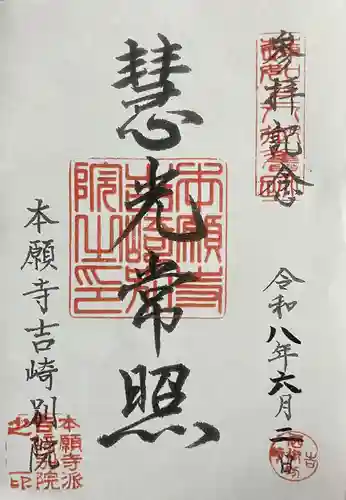 参拝記念
慧光常照
令和八年六月二日
本願寺吉崎別院
本願寺
吉崎別
院之印
本願寺派
吉崎別院
之印